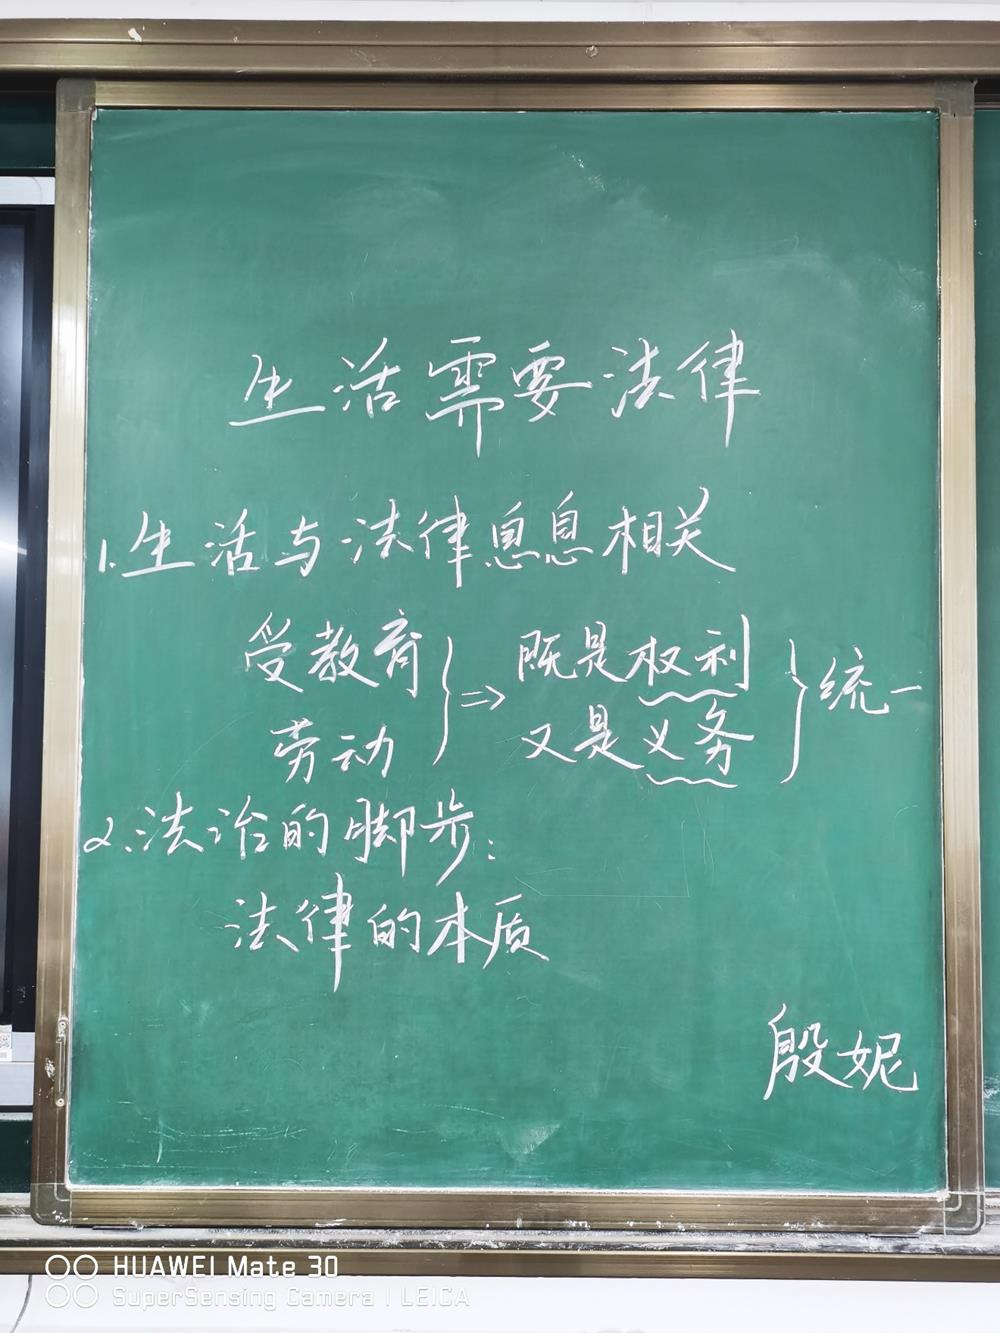 生活需要法律
1.生活与法律息息相关
受教育 } ⇒ 既是权利 } 统一
劳动 又是义务
2.法治的脚步:
法律的本质
殷妮
HUAWEI Mate 30
SuperSensing Camera | LEICA